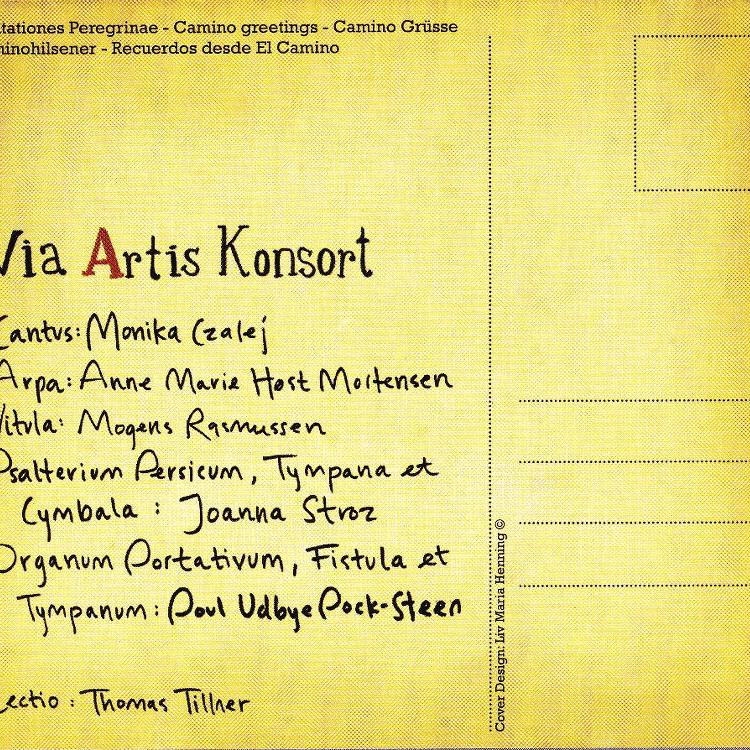 tationes Peregrinae - Camino greetings - Camino Grüsse
inohilsener - Recuerdos desde El Camino
Via Artis Konsort
Cantus: Monika Czalej
Arpa: Anne Marie Høst Mortensen
Vitula: Mogens Rasmussen
Psalterium Persicum, Tympana et
Cymbala : Joanna Stroz
Organum Portativum, Fistula et
Tympanum: Poul Udbye Pock-Steen
Lectio : Thomas Tillner
Cover Design: Liv Maria Henning ©